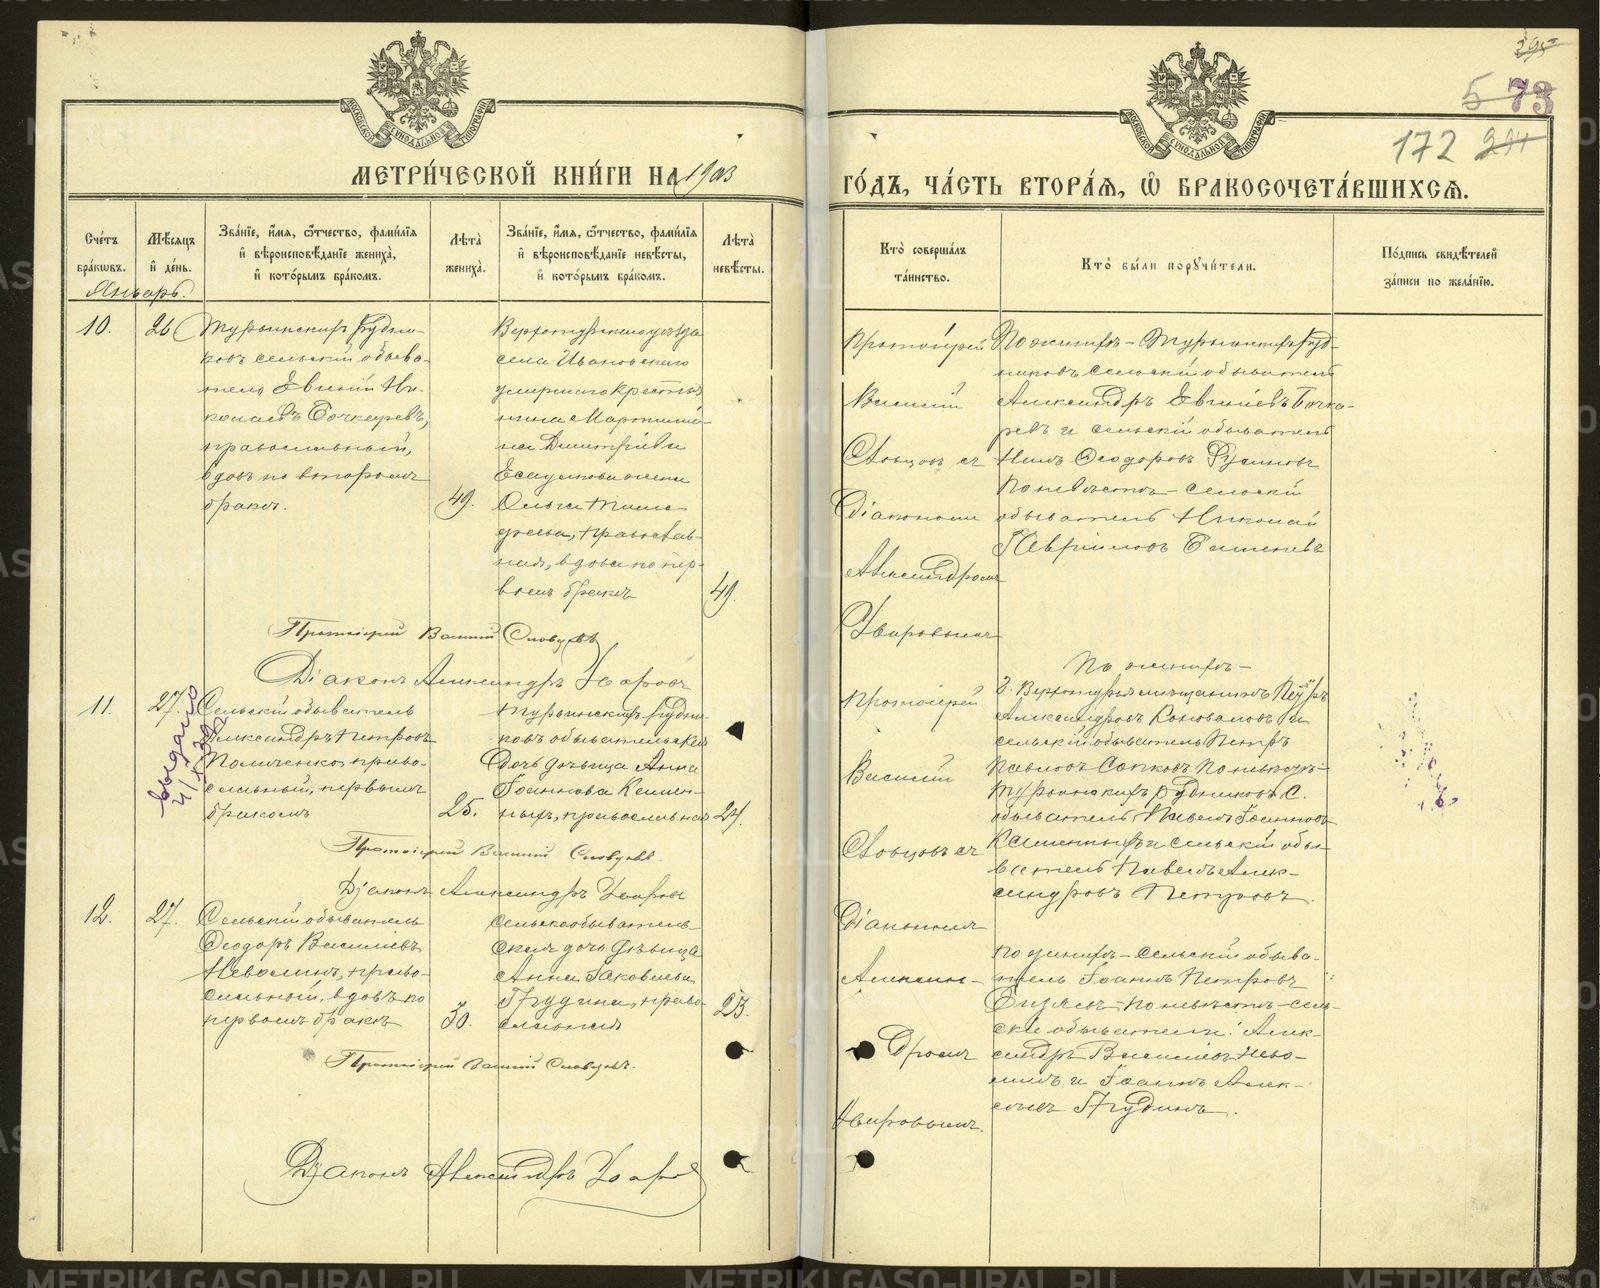 295
5 73
172 294
МЕТРИ́ЧЕСКОЙ КНИ́ГИ НА 1903
ГО́ДЪ, ЧА́СТЬ ВТОРА́Ѧ, Ѡ҆ БРАКОСОЧЕТА́ВШИХСѦ.
Сче́тъ бра́кѡвъ.
Мѣ́сѧцъ и҆ де́нь.
Зва́нїе, и҆́мѧ, ѻ҆́тчество, фами́лїѧ и҆ вѣроисповѣ́данїе жениха̀, и҆ кото́рымъ бра́комъ.
Лѣ́та̀ жениха̀.
Зва́нїе, и҆́мѧ, ѻ҆́тчество, фами́лїѧ и҆ вѣроисповѣ́данїе невѣ́сты, и҆ кото́рымъ бра́комъ.
Лѣ́та̀ невѣ́сты.
Кто̀ соверша́лъ та́инство.
Кто̀ бы́ли порꙋчи́тели.
По́дпись свидѣ́телей за́писи по жела́нїю.
Январь.
10.
26
Турьинскихъ Рудни-
ковъ сельскій обыва-
тель Евгеній Ни-
колаевъ Бочкаревъ,
православный,
вдовъ по второмъ
бракѣ.
49.
Верхотурскаго уѣзда
села Ивановскаго
умершаго крестья-
нина
Димитріева
Ольга Тимо-
феева, православ-
ная, вдова по пер-
вомъ бракѣ
49.
Протоіерей
Василій
Словцовъ съ
Діакономъ
Александромъ
Уваровымъ
По женихѣ – Турьинскихъ Руд-
никовъ сельскій обыватель
Александръ Евгеніевъ Бочка-
ревъ и сельскій обыватель
Ѳеодоровъ
По невѣстѣ – сельскій
обыватель Николай
Гавриловъ
Протоіерей Василій Словцовъ
Діаконъ Александръ Уваровъ
11.
27.
выдано
4/X 39г
Сельскій обыватель
Александръ Петровъ
православный, первымъ
бракомъ
25.
Турьинскихъ Рудни-
ковъ обывательская
дочь дѣвица Анна
Іоаннова Камен-
ныхъ, православная
24.
Протоіерей
Василій
Словцовъ съ
Діакономъ
По женихѣ –
Верхотурскій мѣщанинъ Петръ
Александровъ Коноваловъ и
сельскій обыватель Петръ
Павловъ По невѣстѣ –
Турьинскихъ Рудниковъ с.
обыватель Павелъ Іоанновъ
Каменныхъ и сельскій обы-
ватель Павелъ Алек-
сандровъ Петровъ.
Протоіерей Василій Словцовъ.
Діаконъ Александръ Уваровъ
12.
27.
Сельскій обыватель
Ѳеодоръ Василіевъ
Неволинъ, право-
славный, вдовъ по
первомъ бракѣ
30.
Сельскообыватель-
ская дочь дѣвица
Анна Іаковлева
Грудина, право-
славная
23.
Алексан-
дромъ
Уваровымъ.
По женихѣ – сельскій обыва-
тель Іоаннъ Петровъ
По невѣстѣ – сель-
скіе обыватели: Алек-
сандръ Василіевъ Нево-
линъ и Іоаннъ Алек-
сѣевъ Грудинъ.
Протоіерей Василій Словцовъ.
Діаконъ Александръ Уваровъ
METRIKI.GASO-URAL.RU